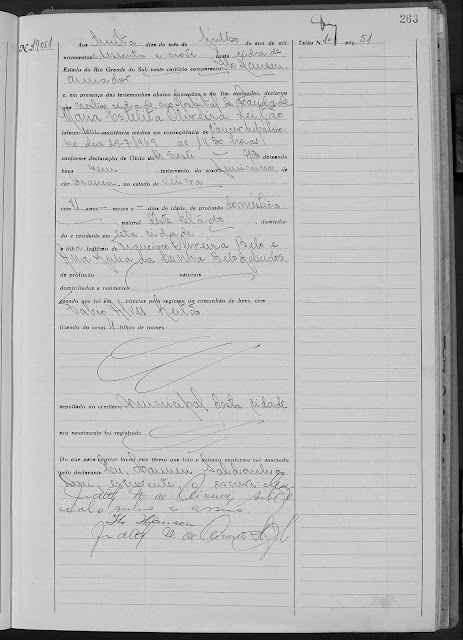 263
Nº 19051
Talão N. 101 pág. 51
Aos trinta dias do mês de julho do ano de mil
novecentos e sessenta e nove nesta cidade
Estado do Rio Grande do Sul, neste cartório compareceu Ilo Hansen,
armador
e, em presença das testemunhas abaixo nomeadas e no fim assinadas, declarou
que no Hospital de Caridade
Maria Oliveira Leitão
faleceu com assistência médica em conseqüência de
no dia 29-7-1969 às 14,30 horas
conforme declaração de Óbito do deixando
bens sem testamento, do sexo feminino, de
côr branca, no estado de viúva
com 81 anos — meses e — dias de idade, de profissão doméstica
natural dêste Estado domicilia-
do e residente em esta cidade
e filho legítimo de Francisco Oliveira Belo e
Ana Julia da Cunha Belo, falecidos
de profissão naturais
domiciliados e residentes
casado que foi em núpcias pelo regimen da comunhão de bens com
Fabio Alves Leitão
ficando do casal 4 filhos de nomes
sepultado no cemitério municipal desta cidade
seu nascimento foi registrado
Do que para constar lavrei êste têrmo que lido e achado conforme vai assinado
pelo declarante. Eu,
escrevente, o escrevi. Eu,
Judith
subscrevo e assino.
Ilo Hansen
Judith